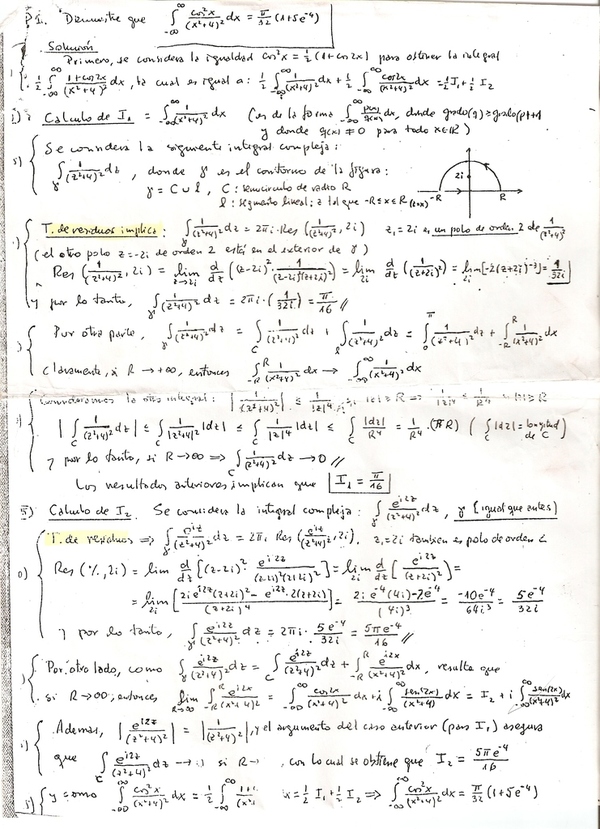 P1. Demuestre que ∫_{-∞}^{∞} cos²x/(x²+4)² dx = π/32 (1+5e^{-4})
Solución
Primero, se considera la igualdad cos²x = 1/2 (1+cos2x) para obtener la integral
1/2 ∫_{-∞}^{∞} (1+cos2x)/(x²+4)² dx, la cual es igual a: 1/2 ∫_{-∞}^{∞} 1/(x²+4)² dx + 1/2 ∫_{-∞}^{∞} cos2x/(x²+4)² dx = 1/2 I₁ + 1/2 I₂
Cálculo de I₁ = ∫_{-∞}^{∞} 1/(x²+4)² dx (es de la forma ∫_{-∞}^{∞} p(x)/q(x) dx, donde grado(q) ≥ grado(p)+1
y donde q(x) ≠ 0 para todo x∈ℝ)
Se considera la siguiente integral compleja:
∫_γ 1/(z²+4)² dz, donde γ es el contorno de la figura:
γ = C ∪ l, C: semicírculo de radio R
l: segmento lineal: z tal que -R≤x≤R (z=x)
2i
-R R
T. de residuos implica: ∫_γ 1/(z²+4)² dz = 2πi · Res(1/(z²+4)², 2i) z₁=2i es un polo de orden 2 de 1/(z²+4)²
(el otro polo z=-2i de orden 2 está en el exterior de γ)
Res(1/(z²+4)², 2i) = lim_{z→2i} d/dz ((z-2i)² · 1/((z-2i)²(z+2i)²)) = lim_{2i} d/dz (1/(z+2i)²) = lim_{2i} [-2(z+2i)^{-3}] = 1/32i
y por lo tanto, ∫_γ 1/(z²+4)² dz = 2πi · (1/32i) = π/16 //
Por otra parte, ∫_γ 1/(z²+4)² dz = ∫_C 1/(z²+4)² dz + ∫_l 1/(z²+4)² dz = ∫_0^π 1/(z²+4)² dz + ∫_{-R}^{R} 1/(x²+4)² dx
Claramente, si R→+∞, entonces ∫_{-R}^{R} 1/(x²+4)² dx → ∫_{-∞}^{∞} 1/(x²+4)² dx
Consideramos la otra integral: |1/(z²+4)²| ≤ 1/|z|⁴
|∫_C 1/(z²+4)² dz| ≤ ∫_C 1/|z²+4|² |dz| ≤ ∫_C 1/|z|⁴ |dz| ≤ ∫_C |dz|/R⁴ = 1/R⁴ · (πR) (∫_C |dz| = longitud de C)
y por lo tanto, si R→∞ ⇒ ∫_C 1/(z²+4)² dz → 0 //
Los resultados anteriores implican que I₁ = π/16
II) Cálculo de I₂. Se considera la integral compleja: ∫_γ e^{i2z}/(z²+4)² dz, γ [igual que antes]
T. de residuos ⇒ ∫_γ e^{i2z}/(z²+4)² dz = 2πi Res(e^{i2z}/(z²+4)², 2i), z₁=2i también es polo de orden 2
Res(%, 2i) = lim_{2i} d/dz [(z-2i)² · e^{i2z}/((z-2i)²(z+2i)²)] = lim_{2i} d/dz [e^{i2z}/(z+2i)²] =
= lim_{2i} [(2ie^{i2z}(z+2i)² - e^{i2z}·2(z+2i))/(z+2i)⁴] = (2i e^{-4}(4i) - 2e^{-4})/(4i)³ = -10e^{-4}/64i³ = 5e^{-4}/32i
y por lo tanto, ∫_γ e^{i2z}/(z²+4)² dz = 2πi · 5e^{-4}/32i = 5πe^{-4}/16 //
Por otro lado, como ∫_γ e^{i2z}/(z²+4)² dz = ∫_C e^{i2z}/(z²+4)² dz + ∫_{-R}^{R} e^{i2x}/(x²+4)² dx, resulta que
si R→∞, entonces lim_{R→∞} ∫_{-R}^{R} e^{i2x}/(x²+4)² = ∫_{-∞}^{∞} cos2x/(x²+4)² dx + i ∫_{-∞}^{∞} sen(2x)/(x²+4)² dx = I₂ + i ∫_{-∞}^{∞} sen(2x)/(x²+4)² dx
Además, |e^{i2z}/(z²+4)²| = |1/(z²+4)²|, y el argumento del caso anterior (para I₁) asegura
que ∫_C e^{i2z}/(z²+4)² dz → si R→ , con lo cual se obtiene que I₂ = 5πe^{-4}/16
y como ∫_{-∞}^{∞} cos²x/(x²+4)² dx = 1/2 ∫_{-∞}^{∞} = 1/2 I₁ + 1/2 I₂ ⇒ ∫_{-∞}^{∞} cos²x/(x²+4)² dx = π/32 (1+5e^{-4})